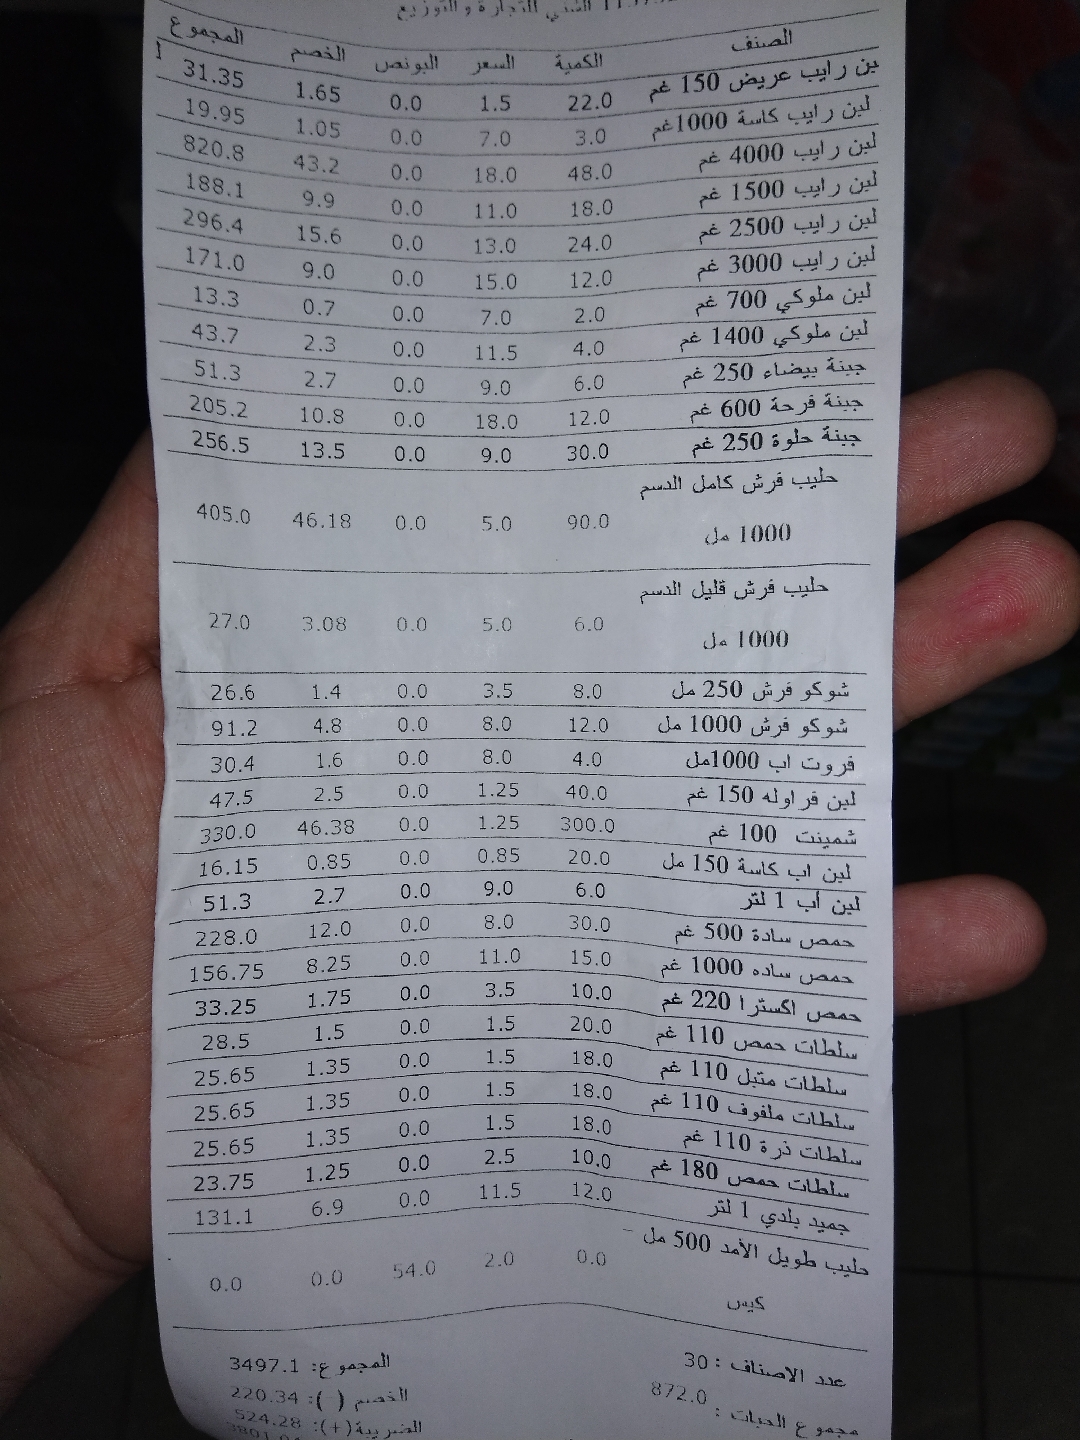 الشني للتجارة والتوزيع
الصنف الكمية السعر البونص الخصم المجموع
بن رايب عريض 150 غم 22.0 1.5 0.0 1.65 31.35
لبن رايب كاسة 1000غم 3.0 7.0 0.0 1.05 19.95
لبن رايب 4000 غم 48.0 18.0 0.0 43.2 820.8
لبن رايب 1500 غم 18.0 11.0 0.0 9.9 188.1
لبن رايب 2500 غم 24.0 13.0 0.0 15.6 296.4
لبن رايب 3000 غم 12.0 15.0 0.0 9.0 171.0
لبن ملوكي 700 غم 2.0 7.0 0.0 0.7 13.3
لبن ملوكي 1400 غم 4.0 11.5 0.0 2.3 43.7
جبنة بيضاء 250 غم 6.0 9.0 0.0 2.7 51.3
جبنة فرحة 600 غم 12.0 18.0 0.0 10.8 205.2
جبنة حلوة 250 غم 30.0 9.0 0.0 13.5 256.5
حليب فرش كامل الدسم
1000 مل 90.0 5.0 0.0 46.18 405.0
حليب فرش قليل الدسم
1000 مل 6.0 5.0 0.0 3.08 27.0
شوكو فرش 250 مل 8.0 3.5 0.0 1.4 26.6
شوكو فرش 1000 مل 12.0 8.0 0.0 4.8 91.2
فروت اب 1000مل 4.0 8.0 0.0 1.6 30.4
لبن فراوله 150 غم 40.0 1.25 0.0 2.5 47.5
شمينت 100 غم 300.0 1.25 0.0 46.38 330.0
لبن اب كاسة 150 مل 20.0 0.85 0.0 0.85 16.15
لبن أب 1 لتر 6.0 9.0 0.0 2.7 51.3
حمص سادة 500 غم 30.0 8.0 0.0 12.0 228.0
حمص ساده 1000 غم 15.0 11.0 0.0 8.25 156.75
حمص اكسترا 220 غم 10.0 3.5 0.0 1.75 33.25
سلطات حمص 110 غم 20.0 1.5 0.0 1.5 28.5
سلطات متبل 110 غم 18.0 1.5 0.0 1.35 25.65
سلطات ملفوف 110 غم 18.0 1.5 0.0 1.35 25.65
سلطات ذرة 110 غم 18.0 1.5 0.0 1.35 25.65
سلطات حمص 180 غم 10.0 2.5 0.0 1.25 23.75
جميد بلدي 1 لتر 12.0 11.5 0.0 6.9 131.1
حليب طويل الأمد 500 مل -
كيس 0.0 2.0 54.0 0.0 0.0
عدد الاصناف : 30 المجموع: 3497.1
مجموع الحبات : 872.0 الخصم (-): 220.34
الضريبة(+): 524.28